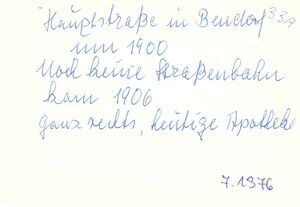 Hauptstraße in Bendorf 33a
um 1900
Noch keine Straßenbahn
kam 1906
ganz rechts, heutige Apotheke
7.1976